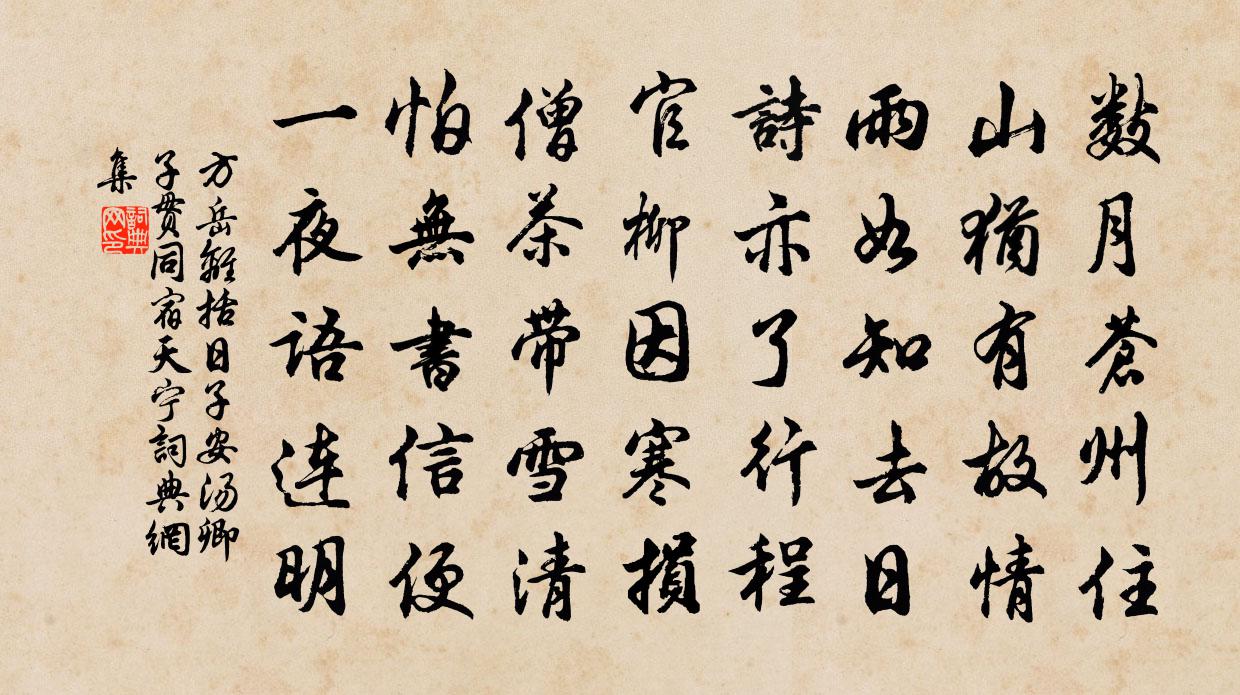 數月蒼州住
山猶有故情
雨如知去日
詩亦了行程
官柳因寒損
僧茶帶雪清
怕無書信便
一夜語連明
方岳離括日子安汤卿
子贯同宿天宁詞典網
集
詞典网印